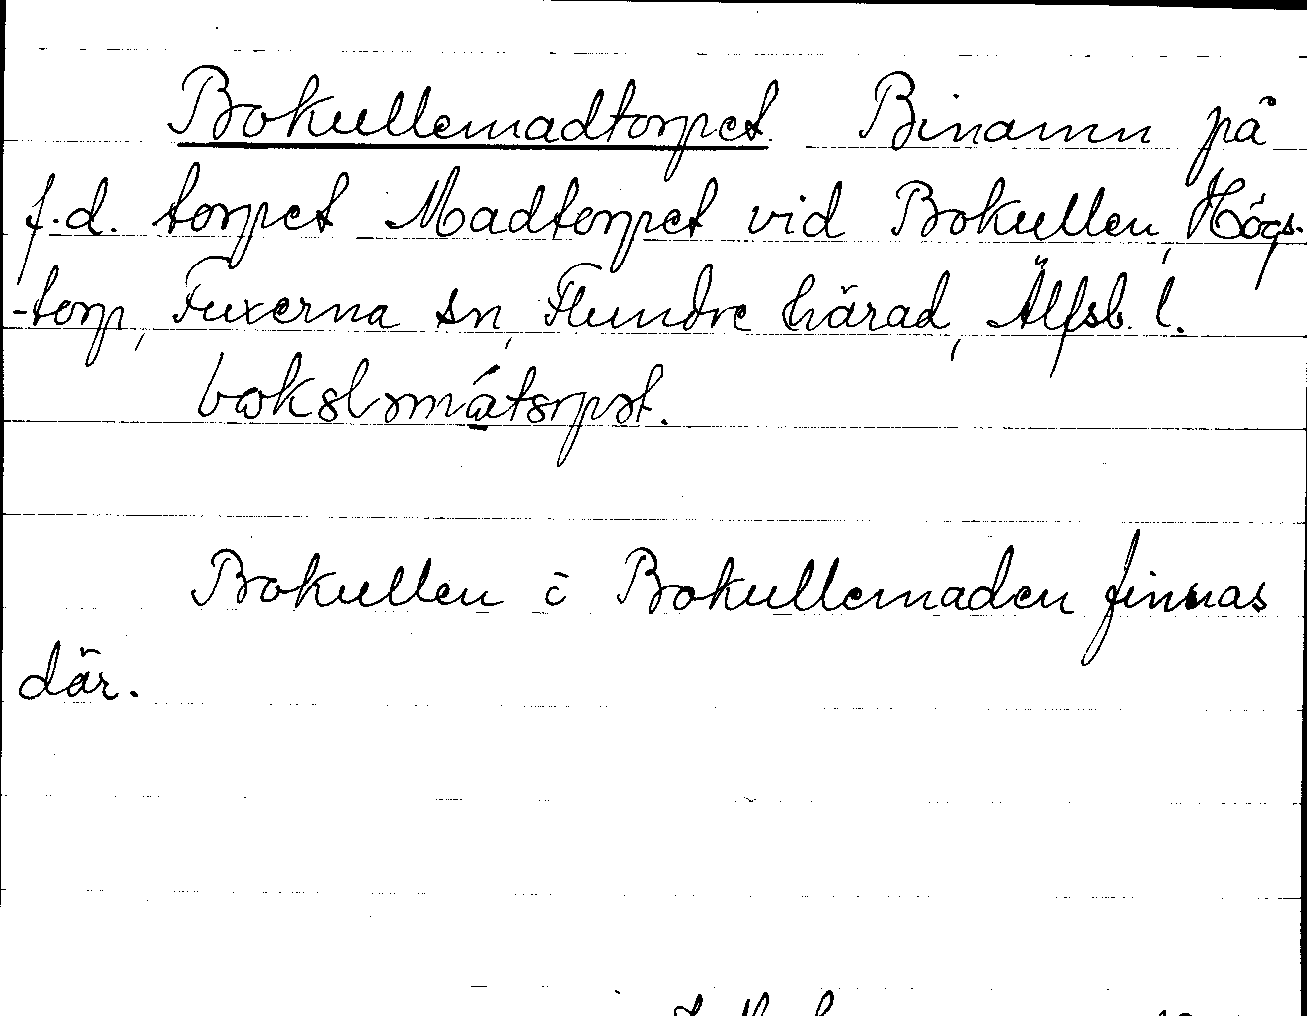 Bokullemadtorpet Binamn på
f.d. torpet Madtorpet vid Bokullen, Högs-
-torp, Fuxerna sn, Flundre härad, Älfsb. l.
Bokullen o Bokullemaden finnas
där.